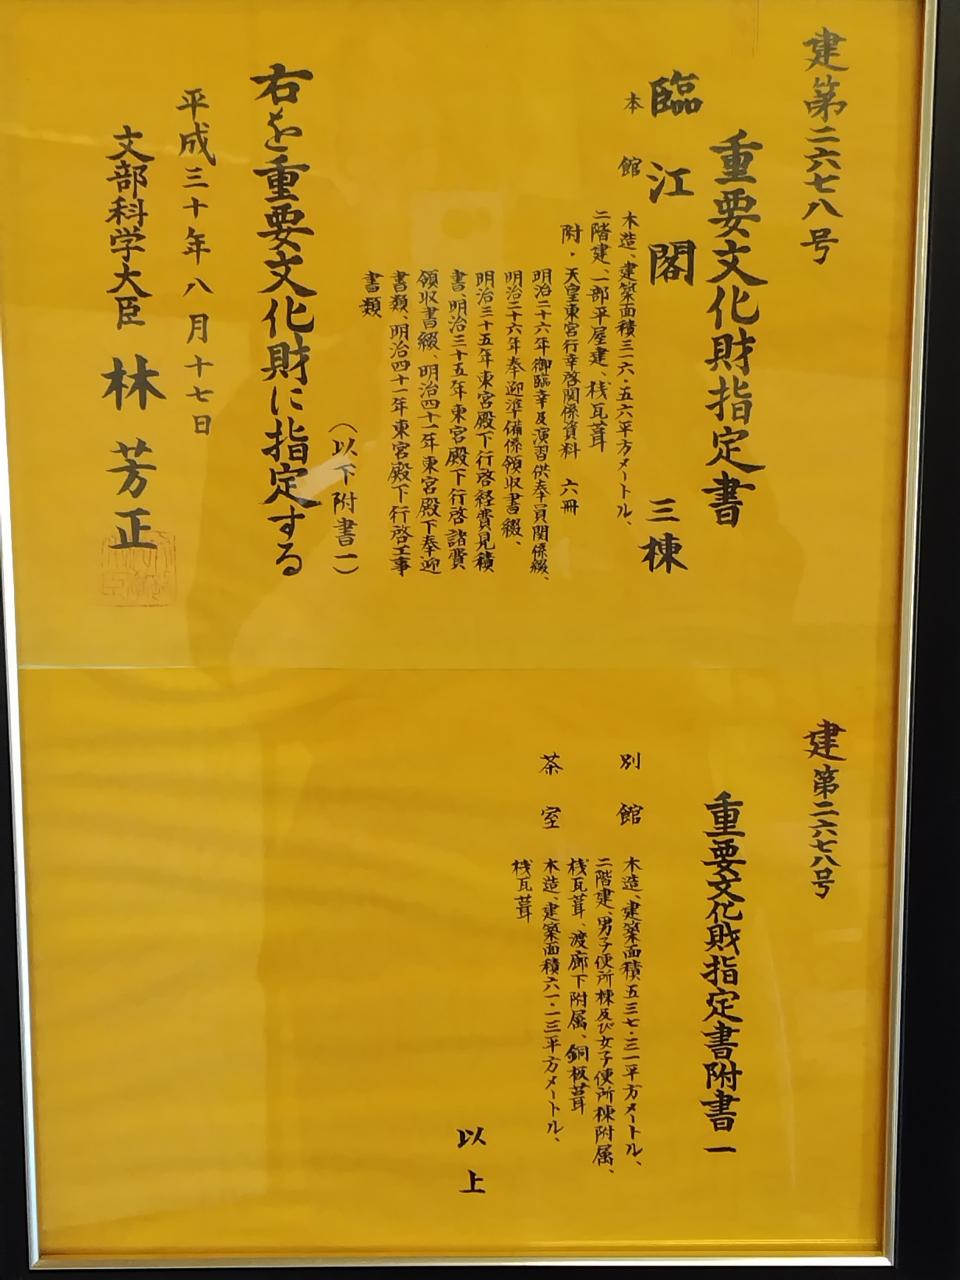 建第二六七八号
重要文化財指定書
臨江閣 三棟
本館
木造、建築面積三一六・五六平方メートル、
二階建、一部平屋建、桟瓦葺
附・天皇東宮行幸啓関係資料 六冊
明治二十六年御臨幸及演習供奉員関係綴、
明治二十六年奉迎準備係領収書綴、
明治三十五年東宮殿下行啓経費見積
書、明治三十五年東宮殿下行啓諸費
領収書綴、明治四十一年東宮殿下奉迎
書類、明治四十一年東宮殿下行啓工事
書類
（以下附書一）
右を重要文化財に指定する
平成三十年八月十七日
文部科学大臣 林芳正
建第二六七八号
重要文化財指定書附書一
別館
木造、建築面積五三七・三一平方メートル、
二階建、男子便所棟及び女子便所棟附属、
桟瓦葺、渡廊下附属、銅板葺
茶室
木造、建築面積六一・一三平方メートル、
桟瓦葺
以上